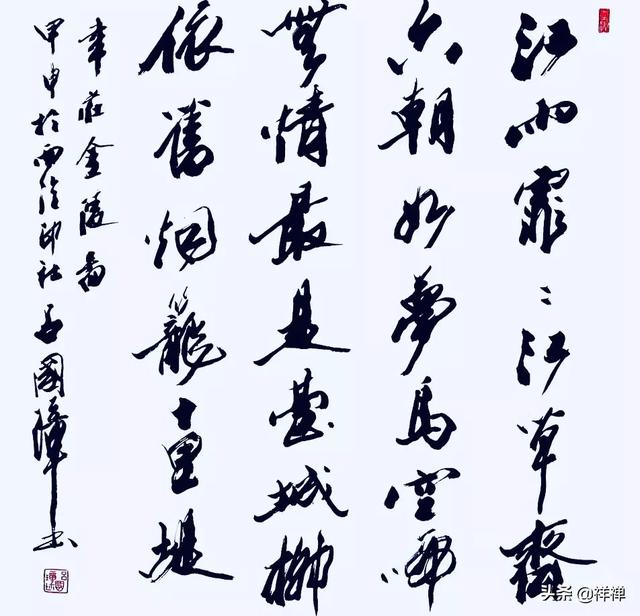 江雨霏〻江草齊
六朝如夢鳥空啼
無情最是臺城柳
依舊烟籠十里堤
韋莊金陵圖
甲申於西泠印社吕國璋书
头条 @祥禅